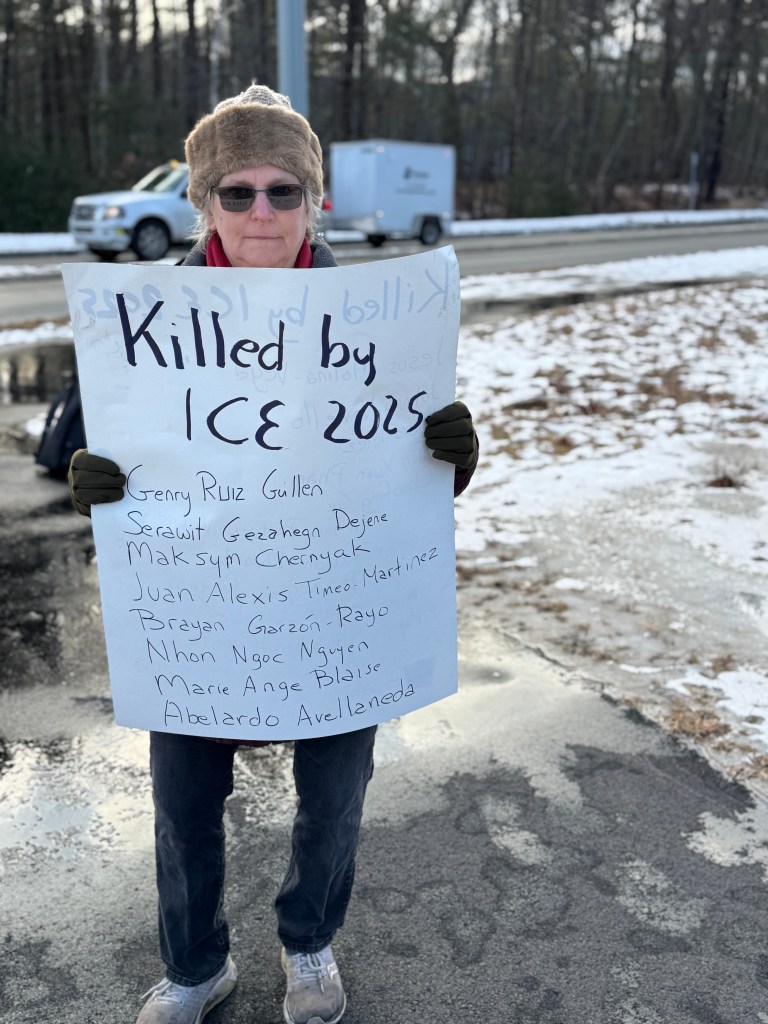 Killed by
ICE 2025
Genry Ruiz Guillen
Serawit Gezahegn Dejene
Maksym Chernyak
Juan Alexis Tineo-Martinez
Brayan Garzón-Rayo
Nhon Ngoc Nguyen
Marie Ange Blaise
Abelardo Avellaneda